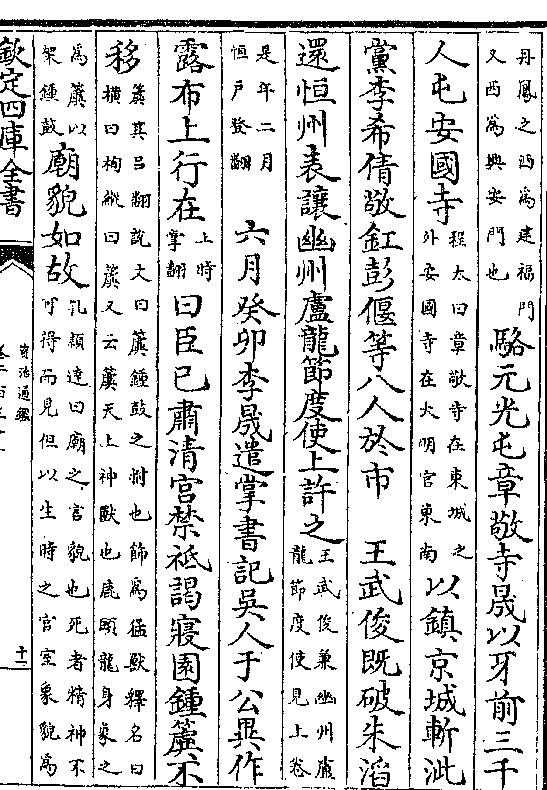 丹鳳之西為建福門
又西為興安門也
駱元光屯章敬寺晟以牙前三千
人屯安國寺
程大曰章敬寺在東城之
外安國寺在大明宮東南
以鎮京城斬泚
黨李希倩敬釭彭偃等八人於市　王武俊既破朱滔
還恒州表讓幽州盧龍節度使上許之
王武俊兼幽州盧
龍節度使見上卷
是年二月
恒戶登翻
六月癸卯李晟遣掌書記吳人于公異作
露布上行在
上時
掌翻
曰臣已肅清宮禁祗謁寢園鍾簴不
移
簴其呂翻說文曰簴鍾鼓之柎也飾為猛獸釋名曰
橫曰栒縱曰簴又云簴天上神獸也鹿頭龍身象之
為簴以
架鍾鼓
廟貌如故
孔穎達曰廟之言貌也死者精神不
可得而見但以生時之宮室象貌為
欽定四庫全書
資治通鑑
十二